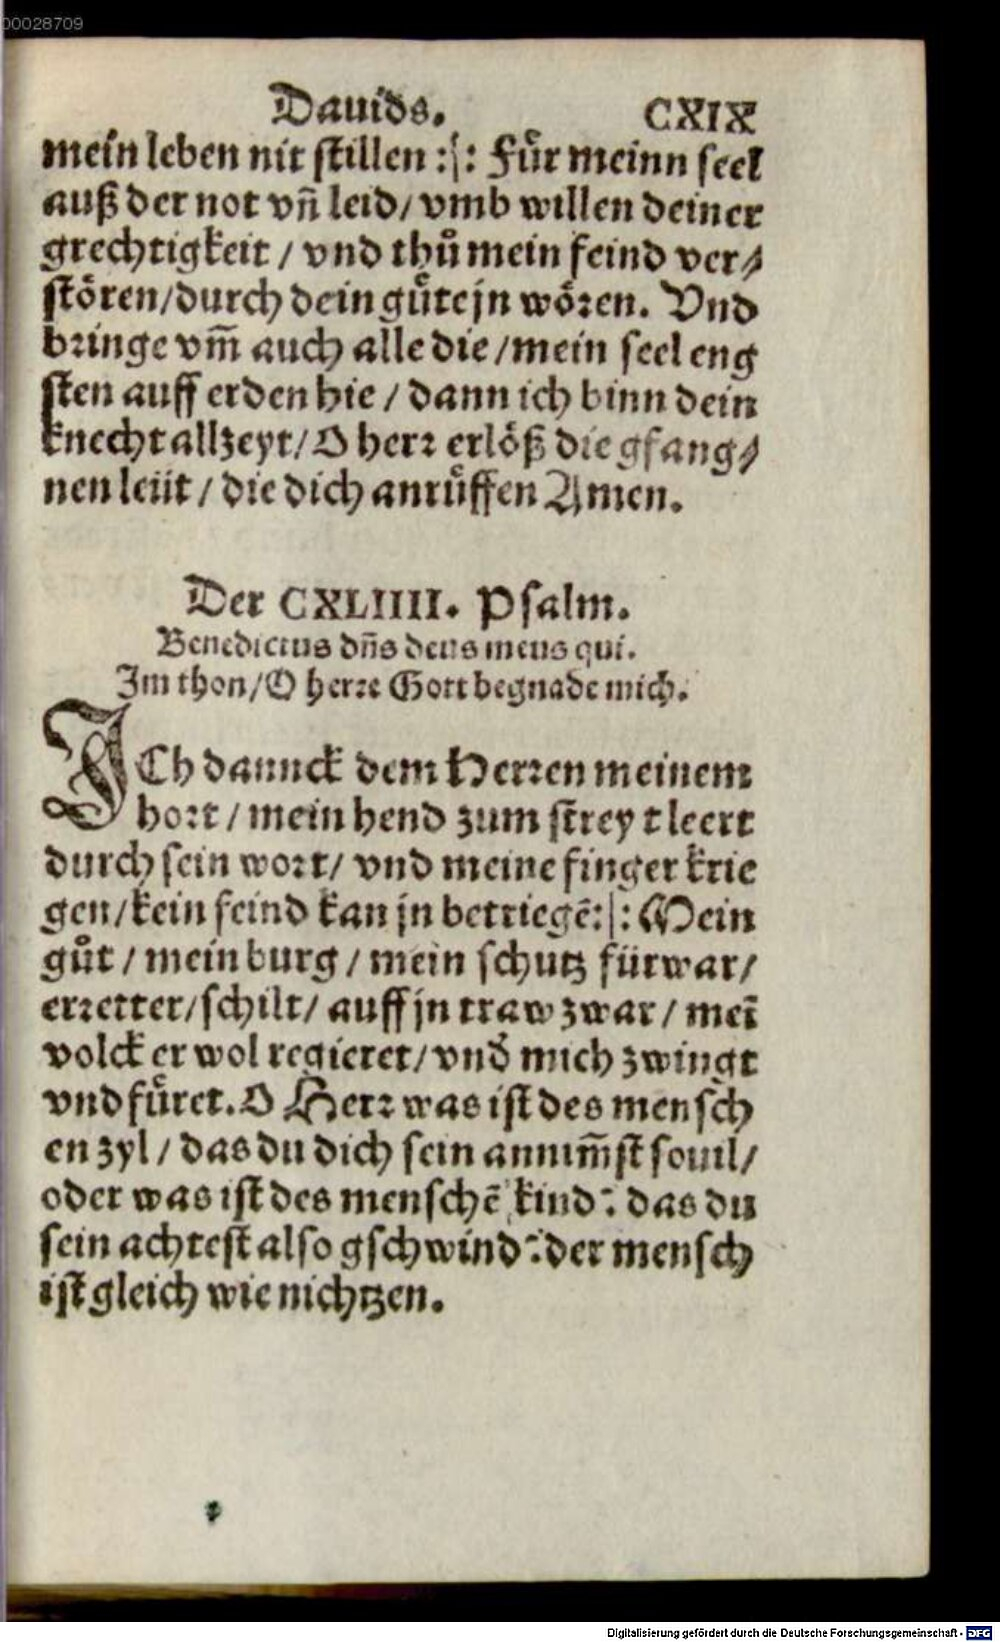 00028709
Dauids. CXIX
mein leben nit stillen :|: Fůr meinn seel
auß der not vñ leid/ vmb willen deiner
grechtigkeit / vnd thů mein feind ver⸗
stören/durch dein gůte jn wören. Vnd
bringe vm̃ auch alle die /mein seel eng
sten auff erden hie / dann ich binn dein
knecht allzeyt/ O herr erlöß die gfang⸗
nen leüt / die dich anrůffen Amen.
Der CXLIIII. Psalm.
Benedictus dñs deus meus qui.
Im thon/O herre Gott begnade mich.
ICh dannck dem Herren meinem
hort / mein hend zum streyt leert
durch sein wort/ vnd meine finger krie
gen/kein feind kan jn betriegẽ:|: Mein
gůt / mein burg / mein schutz fürwar/
erretter/schilt/ auff jn traw zwar / meĩ
volck er wol regieret/vnd mich zwingt
vnd fůret. O Herr was ist des mensch
en zyl / das du dich sein annim̃st souil/
oder was ist des menschẽ kind: das du
sein achtest also gschwind: der mensch
ist gleich wie nichtzen.
Digitalisierung gefördert durch die Deutsche Forschungsgemeinschaft - DFG